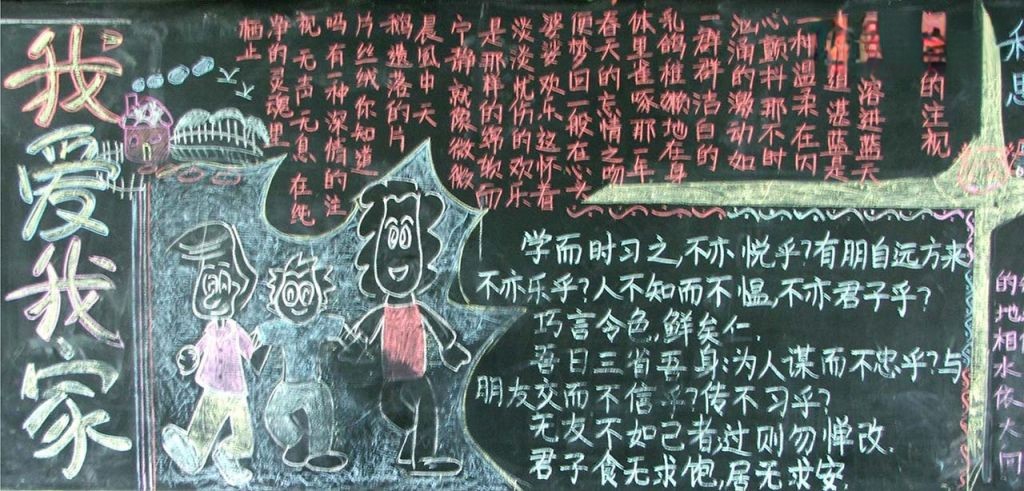 我爱我家
的注视
溶进蓝天
湛蓝是
一种温柔在内
心颤抖那不时
汹涌的激动如
一群群洁白的
乳鸽 地在身
体里雀啄那一车
春天的恋情之吻
便梦回一般在心头
婆娑欢乐这怀着
淡淡忧伤的欢乐
是那样的绵软而
宁静就像微微
晨风中天
鹅遗落的片
片丝绒你知道
吗有一种深情的注
视无声无息在纯
净的灵魂里
栖止
学而时习之,不亦悦乎?有朋自远方来
不亦乐乎?人不知而不愠,不亦君子乎?
巧言令色,鲜矣仁.
吾日三省吾身:为人谋而不忠乎?与
朋友交而不信乎?传不习乎?
无友不如己者,过则勿惮改.
君子食无求饱,居无求安.
的地相水依大同